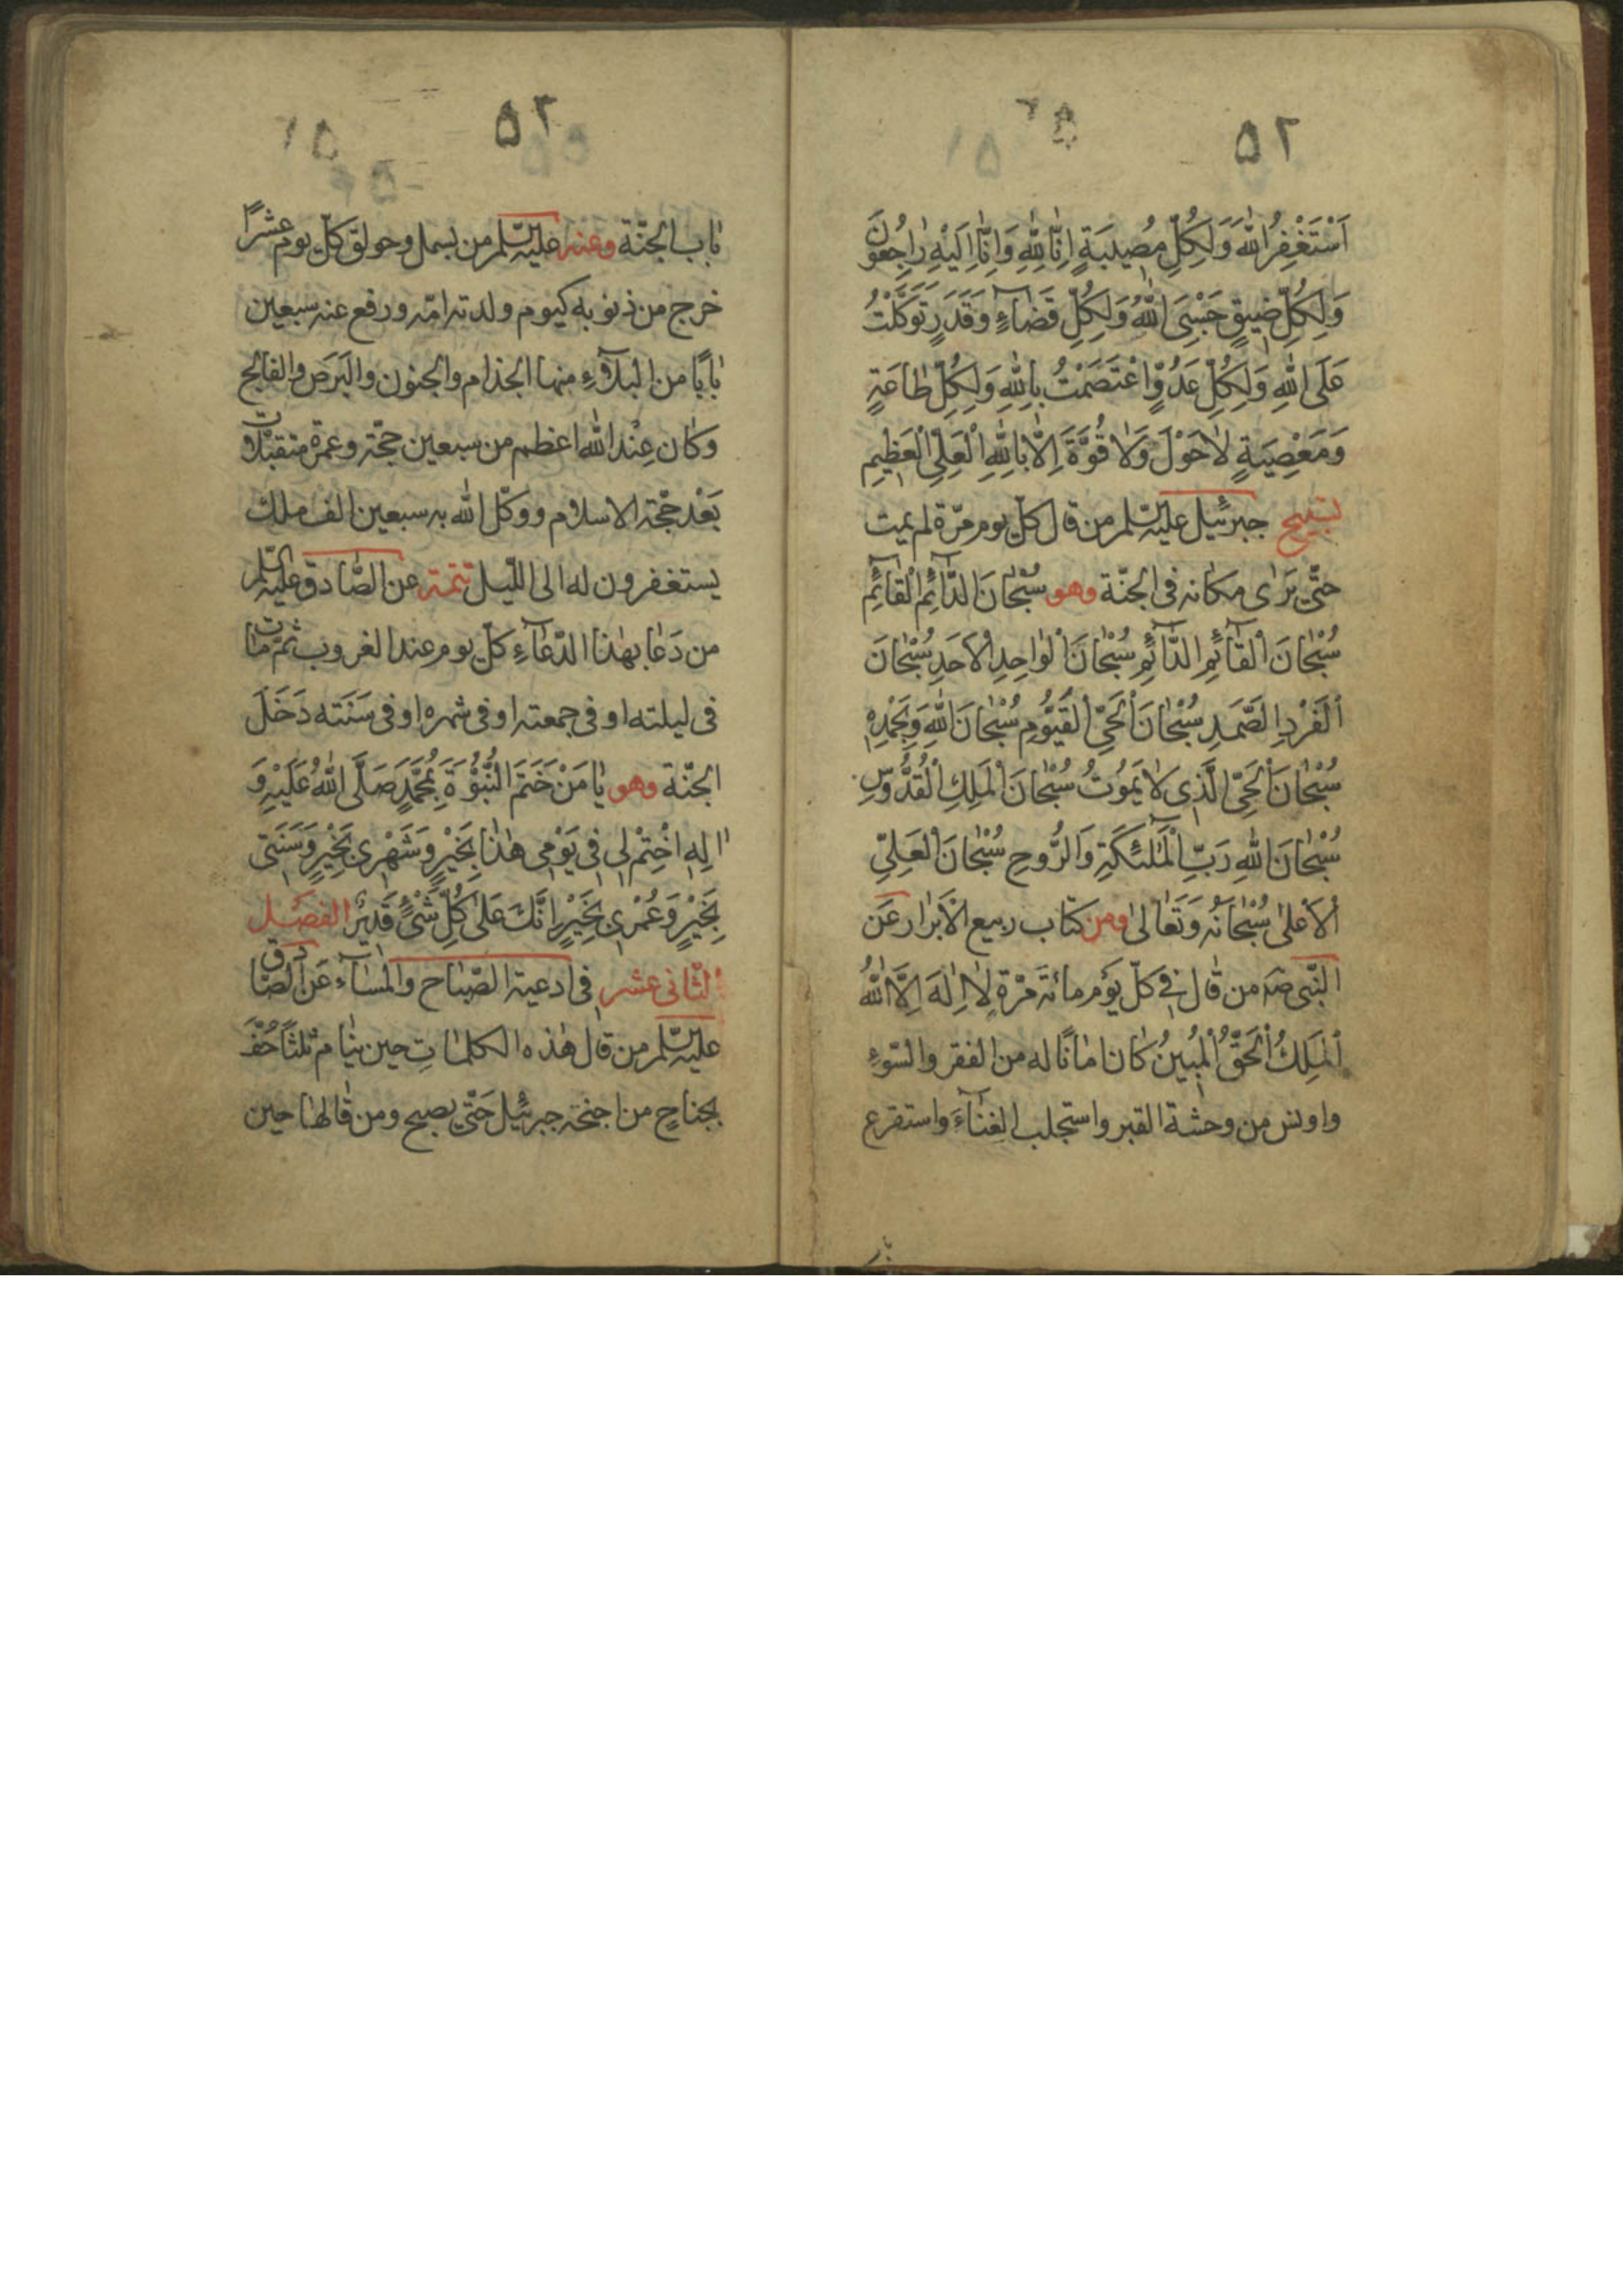 ٥٢
اَسْتَغْفِرُ اللّٰهَ وَلِكُلِّ مُصِيبَةٍ اِنَّا لِلّٰهِ وَاِنَّا اِلَيْهِ رَاجِعُونَ
وَلِكُلِّ ضِيقٍ حَسْبِيَ اللّٰهُ وَلِكُلِّ قَضَاءٍ وَقَدَرٍ تَوَكَّلْتُ
عَلَى اللّٰهِ وَلِكُلِّ عَدُوٍّ اعْتَصَمْتُ بِاللّٰهِ وَلِكُلِّ طَاعَةٍ
وَمَعْصِيَةٍ لَاحَوْلَ وَلَا قُوَّةَ اِلَّا بِاللّٰهِ الْعَلِيِّ الْعَظِيمِ
تسبيح جبرئيل عليه السلم من قال كلّ يوم مرّة لم يمت
حتّى يَرٰى مكانه فى الجنّة وهو سُبْحَانَ الدَّائِمِ الْقَائِمِ
سُبْحَانَ الْقَائِمِ الدَّائِمِ سُبْحَانَ الْوَاحِدِ الْاَحَدِ سُبْحَانَ
الْفَرْدِ الصَّمَدِ سُبْحَانَ الْحَيِّ الْقَيُّومِ سُبْحَانَ اللّٰهِ وَبِحَمْدِهِ
سُبْحَانَ الْحَيِّ الَّذِى لَا يَمُوتُ سُبْحَانَ الْمَلِكِ الْقُدُّوسِ
سُبْحَانَ اللّٰهِ رَبِّ الْمَلٰئِكَةِ وَالرُّوحِ سُبْحَانَ الْعَلِيِّ
الْاَعْلٰى سُبْحَانَهُ وَتَعَالٰى ومن كتاب ربيع الْاَبْرَار عَن
النّبى صم من قال فى كلّ يَوْم مائة مَرّة لَا اِلٰهَ اِلَّا اللّٰهُ
الْمَلِكُ الْحَقُّ الْمُبِينُ كان امانًا له من الفقر والسّوءِ
واونس من وحشة القبر واستجلب الغِنَاءَ واستقرع
با
٥٢
باب الجنّة وعنه عليه السلم من بسمل وحولق كلّ يوم عشرًا
خرج من ذنوبه كيوم ولدته امّه ورفع عنه سبعين
بابًا من البلاءِ منها الجذام والجنون والبَرَص والفالج
وكان عِنْد اللّٰه اعظم من سبعين حجّة وعمرة متقبّلات
بَعْد حجّة الاسلام ووكّل اللّٰه به سبعين الف ملك
يستغفرون له الى اللّيل تتمة عن الصّادق عليه السلم
من دَعَا بهٰذا الدّعَاءِ كلّ يوم عند الغروب ثمّ مات
فى ليلته او فى جمعته او فى شهره او فى سَنَته دَخَلَ
الجنّة وهو يَا مَنْ خَتَمَ النُّبُوَّةَ بِمُحَمَّدٍ صَلَّى اللّٰهُ عَلَيْهِ وَ
اٰلِهِ اخْتِمْ لِى فِى يَوْمِى هٰذَا بِخَيْرٍ وَشَهْرِى بِخَيْرٍ وَسَنَتِى
بِخَيْرٍ وَعُمْرِى بِخَيْرٍ اِنَّكَ عَلٰى كُلِّ شَىْءٍ قَدِيرٌ الفصل
الثّانى عشر فى ادعية الصّباح والمَسَاء عَن الصّادق
عليه السّلم من قال هٰذه الكلمَات حين ينَام ثلثًا حُفَّ
بجناحٍ من اجنحة جبرئيل حَتّى يصبح ومن قالهَا حين